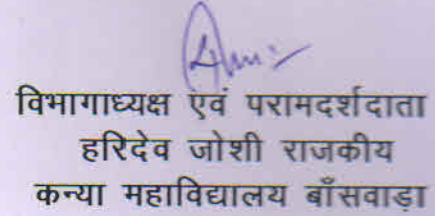 विभागाध्यक्ष एवं परामदर्शदाता
हरिदेव जोशी राजकीय
कन्या महाविद्यालय बाँसवाड़ा